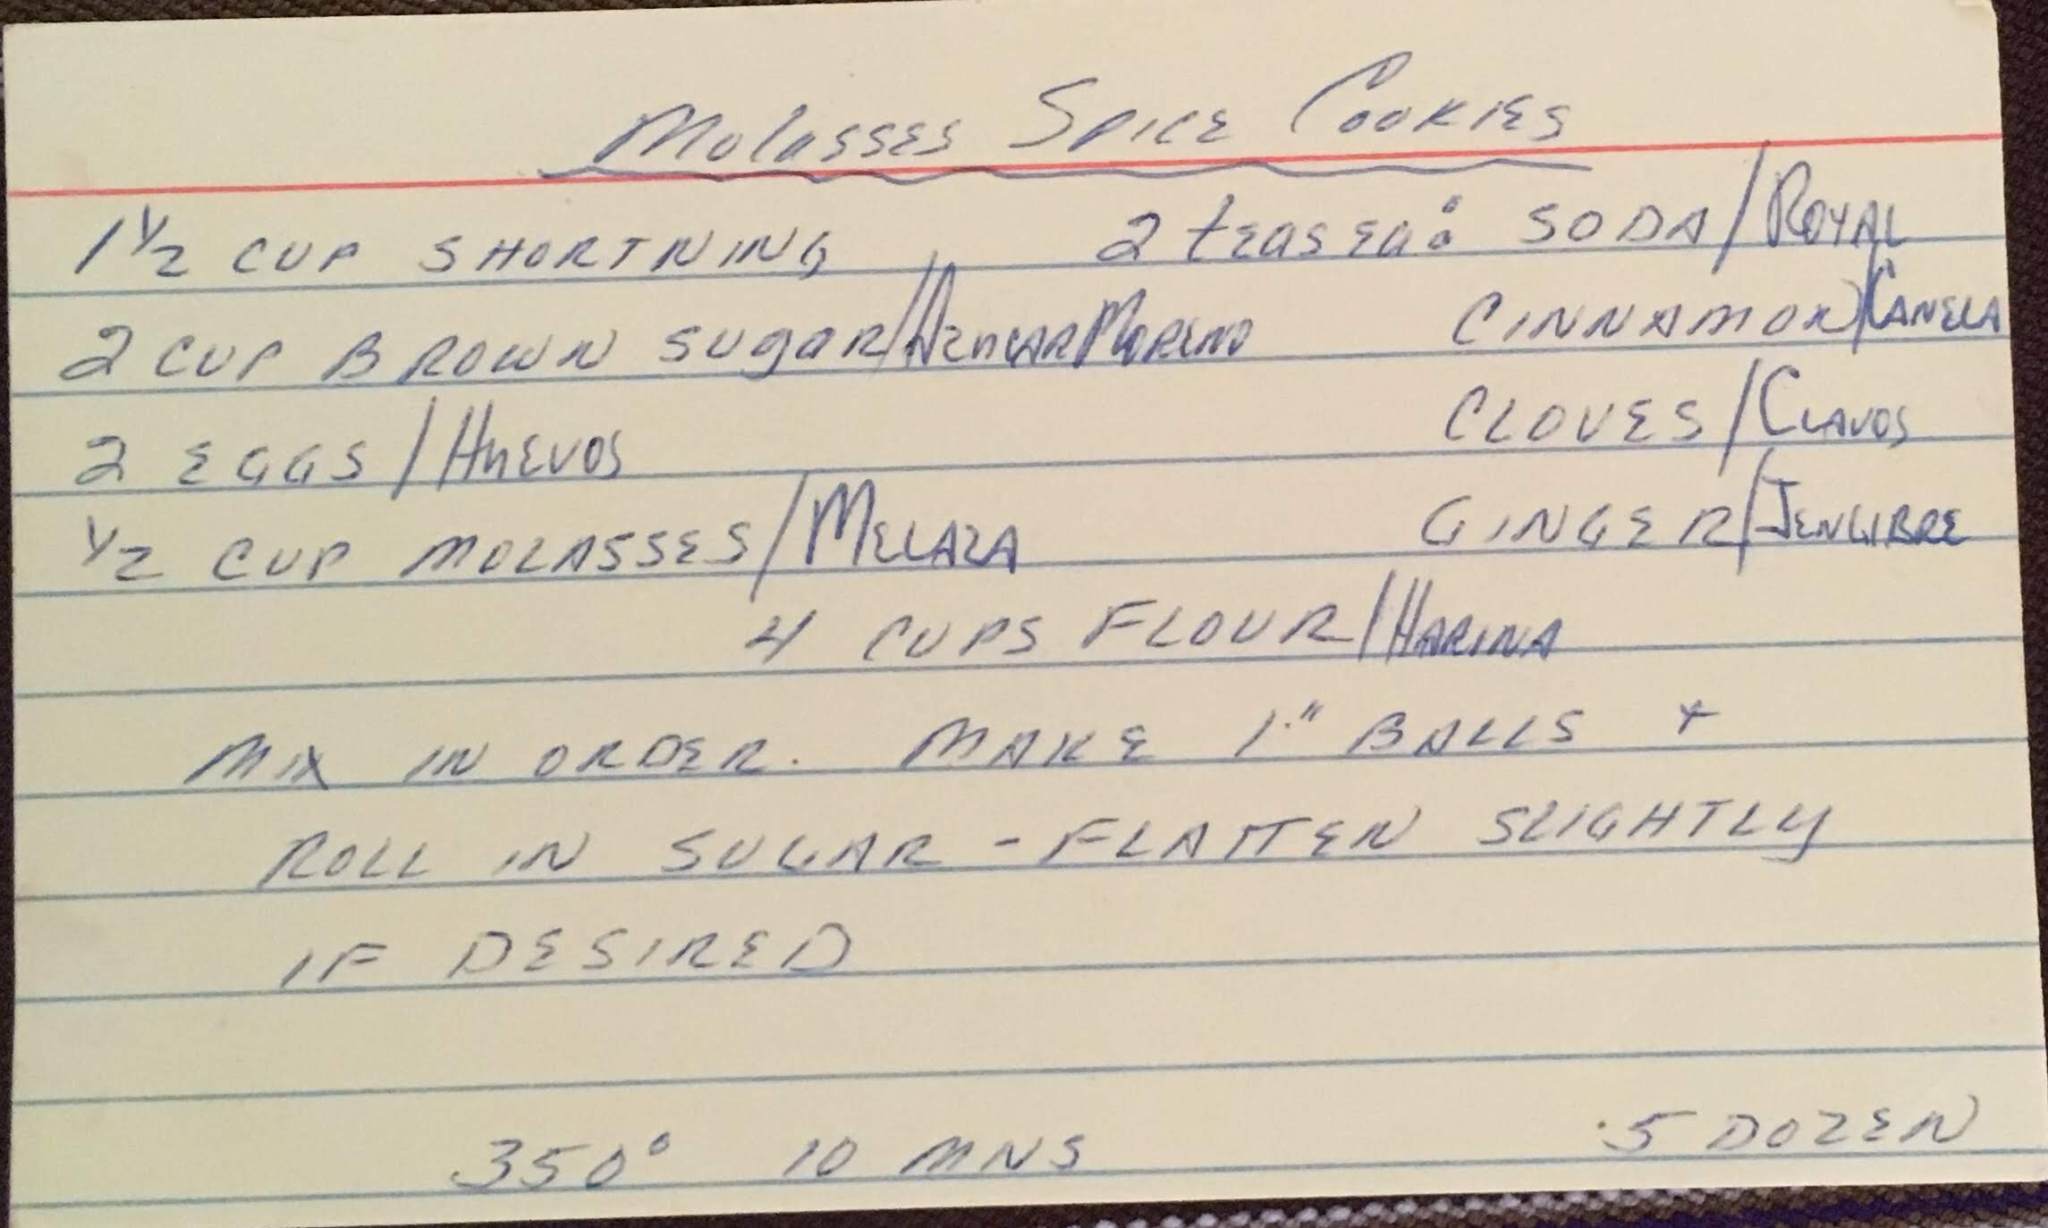 Molasses Spice Cookies
1 1/2 CUP SHORTNING 2 teas ea: SODA/ROYAL
2 CUP BROWN SUgaR/AZUCAR MORENO CINNAMON/CANELA
2 EGGS/HUEVOS CLOVES/CLAVOS
1/2 CUP MOLASSES/MELAZA GINGER/JENGIBRE
4 CUPS FLOUR/HARINA
MIX IN ORDER. MAKE 1" BALLS +
ROLL IN SUGAR - FLATTEN SLIGHTLY
IF DESIRED
350° 10 MNS 5 DOZEN